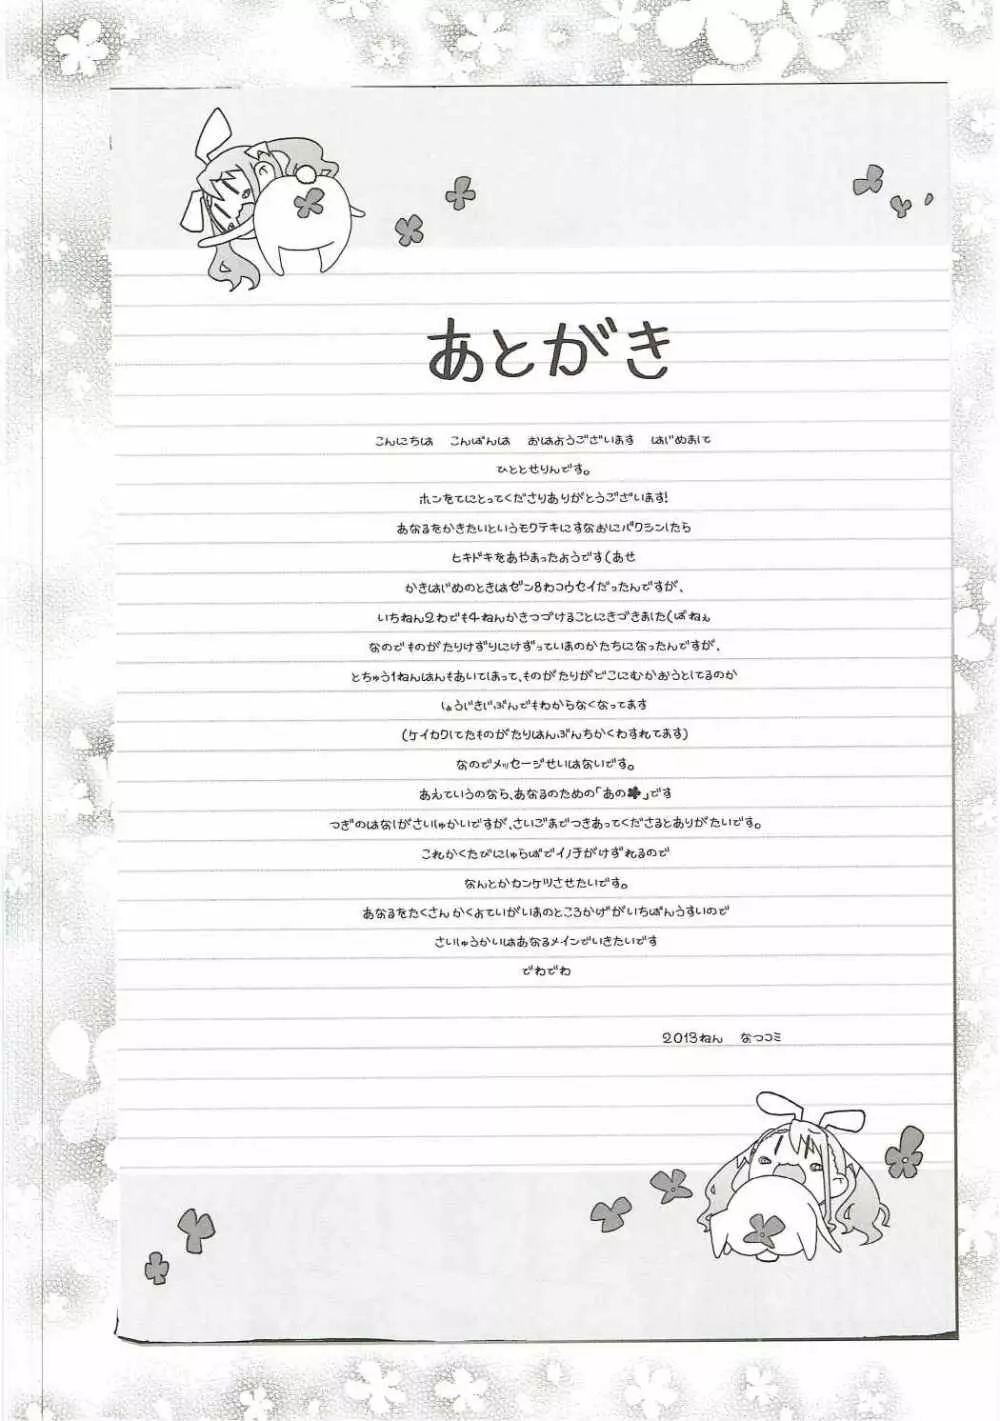 あとがき
こんにちは　こんばんは　おはようございます　はじめまして
ひととせりんです。
ホンをてにとってくださりありがとうございます!
あなるをかきたいというモクテキにすなおにバクシンしたら
ヒキドキをあやまったようです(あせ
かきはじめのときはゼン8わコウセイだったんですが、
いちねん2わでも4ねんかきつづけることにきづきました(ばねぇ
なのでものがたりけずりにけずっていまのかたちになったんですが、
とちゅう1ねんはんもあいてしまって、ものがたりがどこにむかおうとしてるのか
しょうじきじぶんでもわからなくなってます
(ケイカクしてたものがたりはんぶんちかくわすれてます)
なのでメッセージせいはないです。
あえていうのなら、あなるのための「あの✤」です
つぎのはなしがさいしゅかいですが、さいごまでつきあってくださるとありがたいです。
これかくたびにしゅらばでイノチがけずれるので
なんとかカンケツさせたいです。
あなるをたくさんかくよていがいまのところかげがいちばんうすいので
さいしゅうかいはあなるメインでいきたいです
でわでわ
2013ねん　なつコミ